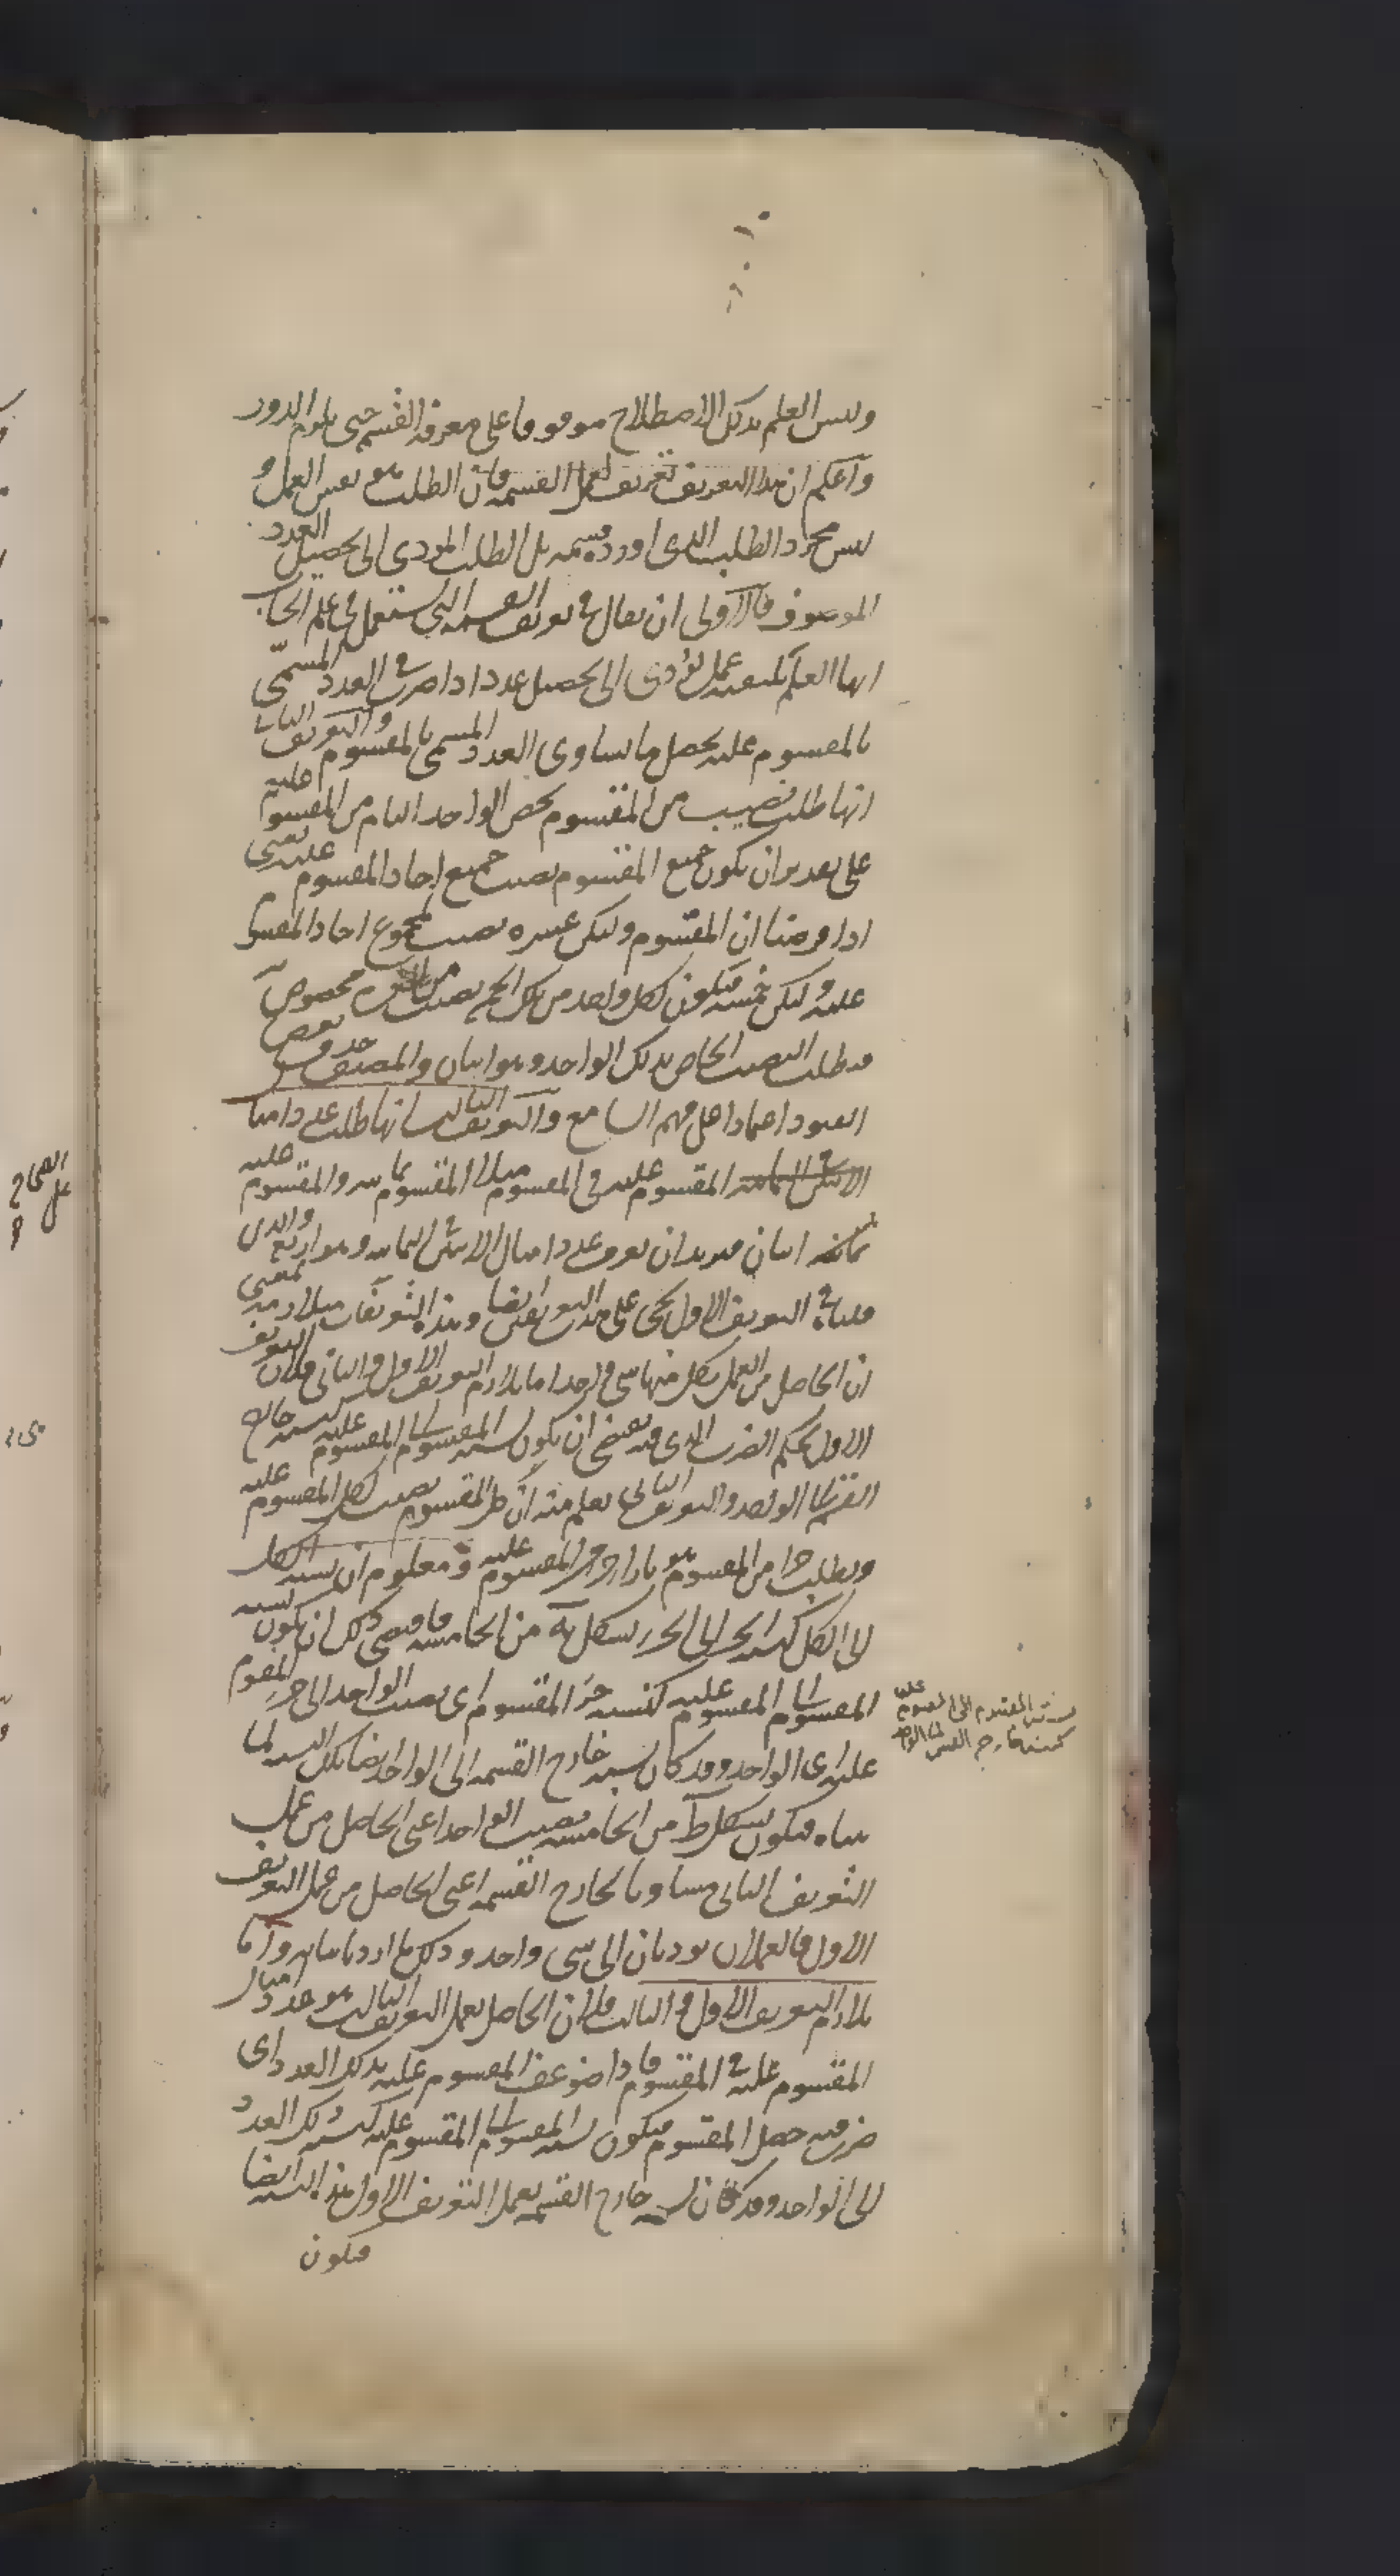 وليس العلم بذلك الاصطلاح موقوفا على معرفة القسمة حتى يلزم الدور
واعلم ان هذا التعريف تعريف لعمل القسمة فان الطلب هو نفس العمل و
ليس مجرد الطلب الذى اورده قسمة بل الطلب المودى الى تحصيل العدد
الموصوف فالاولى ان يقال فى تعريف القسمة التى يستعمل فى علم الحساب
انها العلم بكيفية عمل يؤدى الى تحصيل عدد اذا ضرب فى العدد المسمى
بالمقسوم عليه يحصل ما يساوى العدد المسمى بالمقسوم والتعريف الثانى
انها طلب نصيب من المقسوم يخص الواحد التام من المقسوم عليه
على تقدير ان يكون جميع المقسوم نصيب جميع احاد المقسوم عليه يعنى
اذا فرضنا ان المقسوم وليكن عشرة نصيب مجموع احاد المقسوم
عليه وليكن خمسة فيكون لكل واحد من تلك الخمسة نصيب من العشرة مخصوص
فطلب النصيب الخاص بذلك الواحد وهو اثنان والمصنف حذف بعض
القيود اعتمادا على فهم السامع والتعريف الثالث انها طلب عدد امثال
المقسوم عليه فى المقسوم مثلا المقسوم ثمانية والمقسوم عليه
اثنان فنريد ان نعرف عدد امثال الاثنين فى الثمانية وهو اربع والذى
قلناه فى التعريف الاول يجى على هذا التعريف ايضا وهذه التعريفات متلازمة بمعنى
ان الحاصل من العمل بكل منها شى واحد اما تلازم التعريف الاول والثانى فلان التعريف
الاول بحكم الضرب الذى فيه يقتضى ان يكون نسبة المقسوم الى المقسوم عليه كنسبة خارج
القسمة الى الواحد والتعريف الثانى يعلم منه ان كل المقسوم نصيب لكل المقسوم عليه
ويطلب جزا من المقسوم هو بازا جزء المقسوم عليه ومعلوم ان نسبة الكل
الى الكل كنسبة الجزء الى الجزء بشكل يه من الخامسة فاقتضى ذلك ان يكون نسبة
المقسوم الى المقسوم عليه كنسبة جزء المقسوم اى نصيب الواحد الى جزء المقسوم
عليه اى الواحد وقد كان نسبة خارج القسمة الى الواحد ايضا تلك النسبة لما
بيناه فيكون بشكل ط من الخامسة نصيب الواحد اعنى الحاصل من عمل
التعريف الثانى مساويا لخارج القسمة اعنى الحاصل من عمل التعريف
الاول فالعملان يوديان الى شى واحد وذلك ما اردنا بيانه واما
تلازم التعريف الاول والثالث فلان الحاصل بعمل التعريف الثالث هو عدد امثال
المقسوم عليه فى المقسوم فاذا ضوعف المقسوم عليه بذلك العدد اى
ضرب فيه حصل المقسوم فيكون نسبة المقسوم الى المقسوم عليه كنسبة ذلك العدد
الى الواحد وقد كان نسبة خارج القسمة بعمل التعريف الاول هذه النسبة ايضا
فيكون
نسبة المقسوم الى المقسوم عليه
كنسبة خارج القسمة الى الواحد